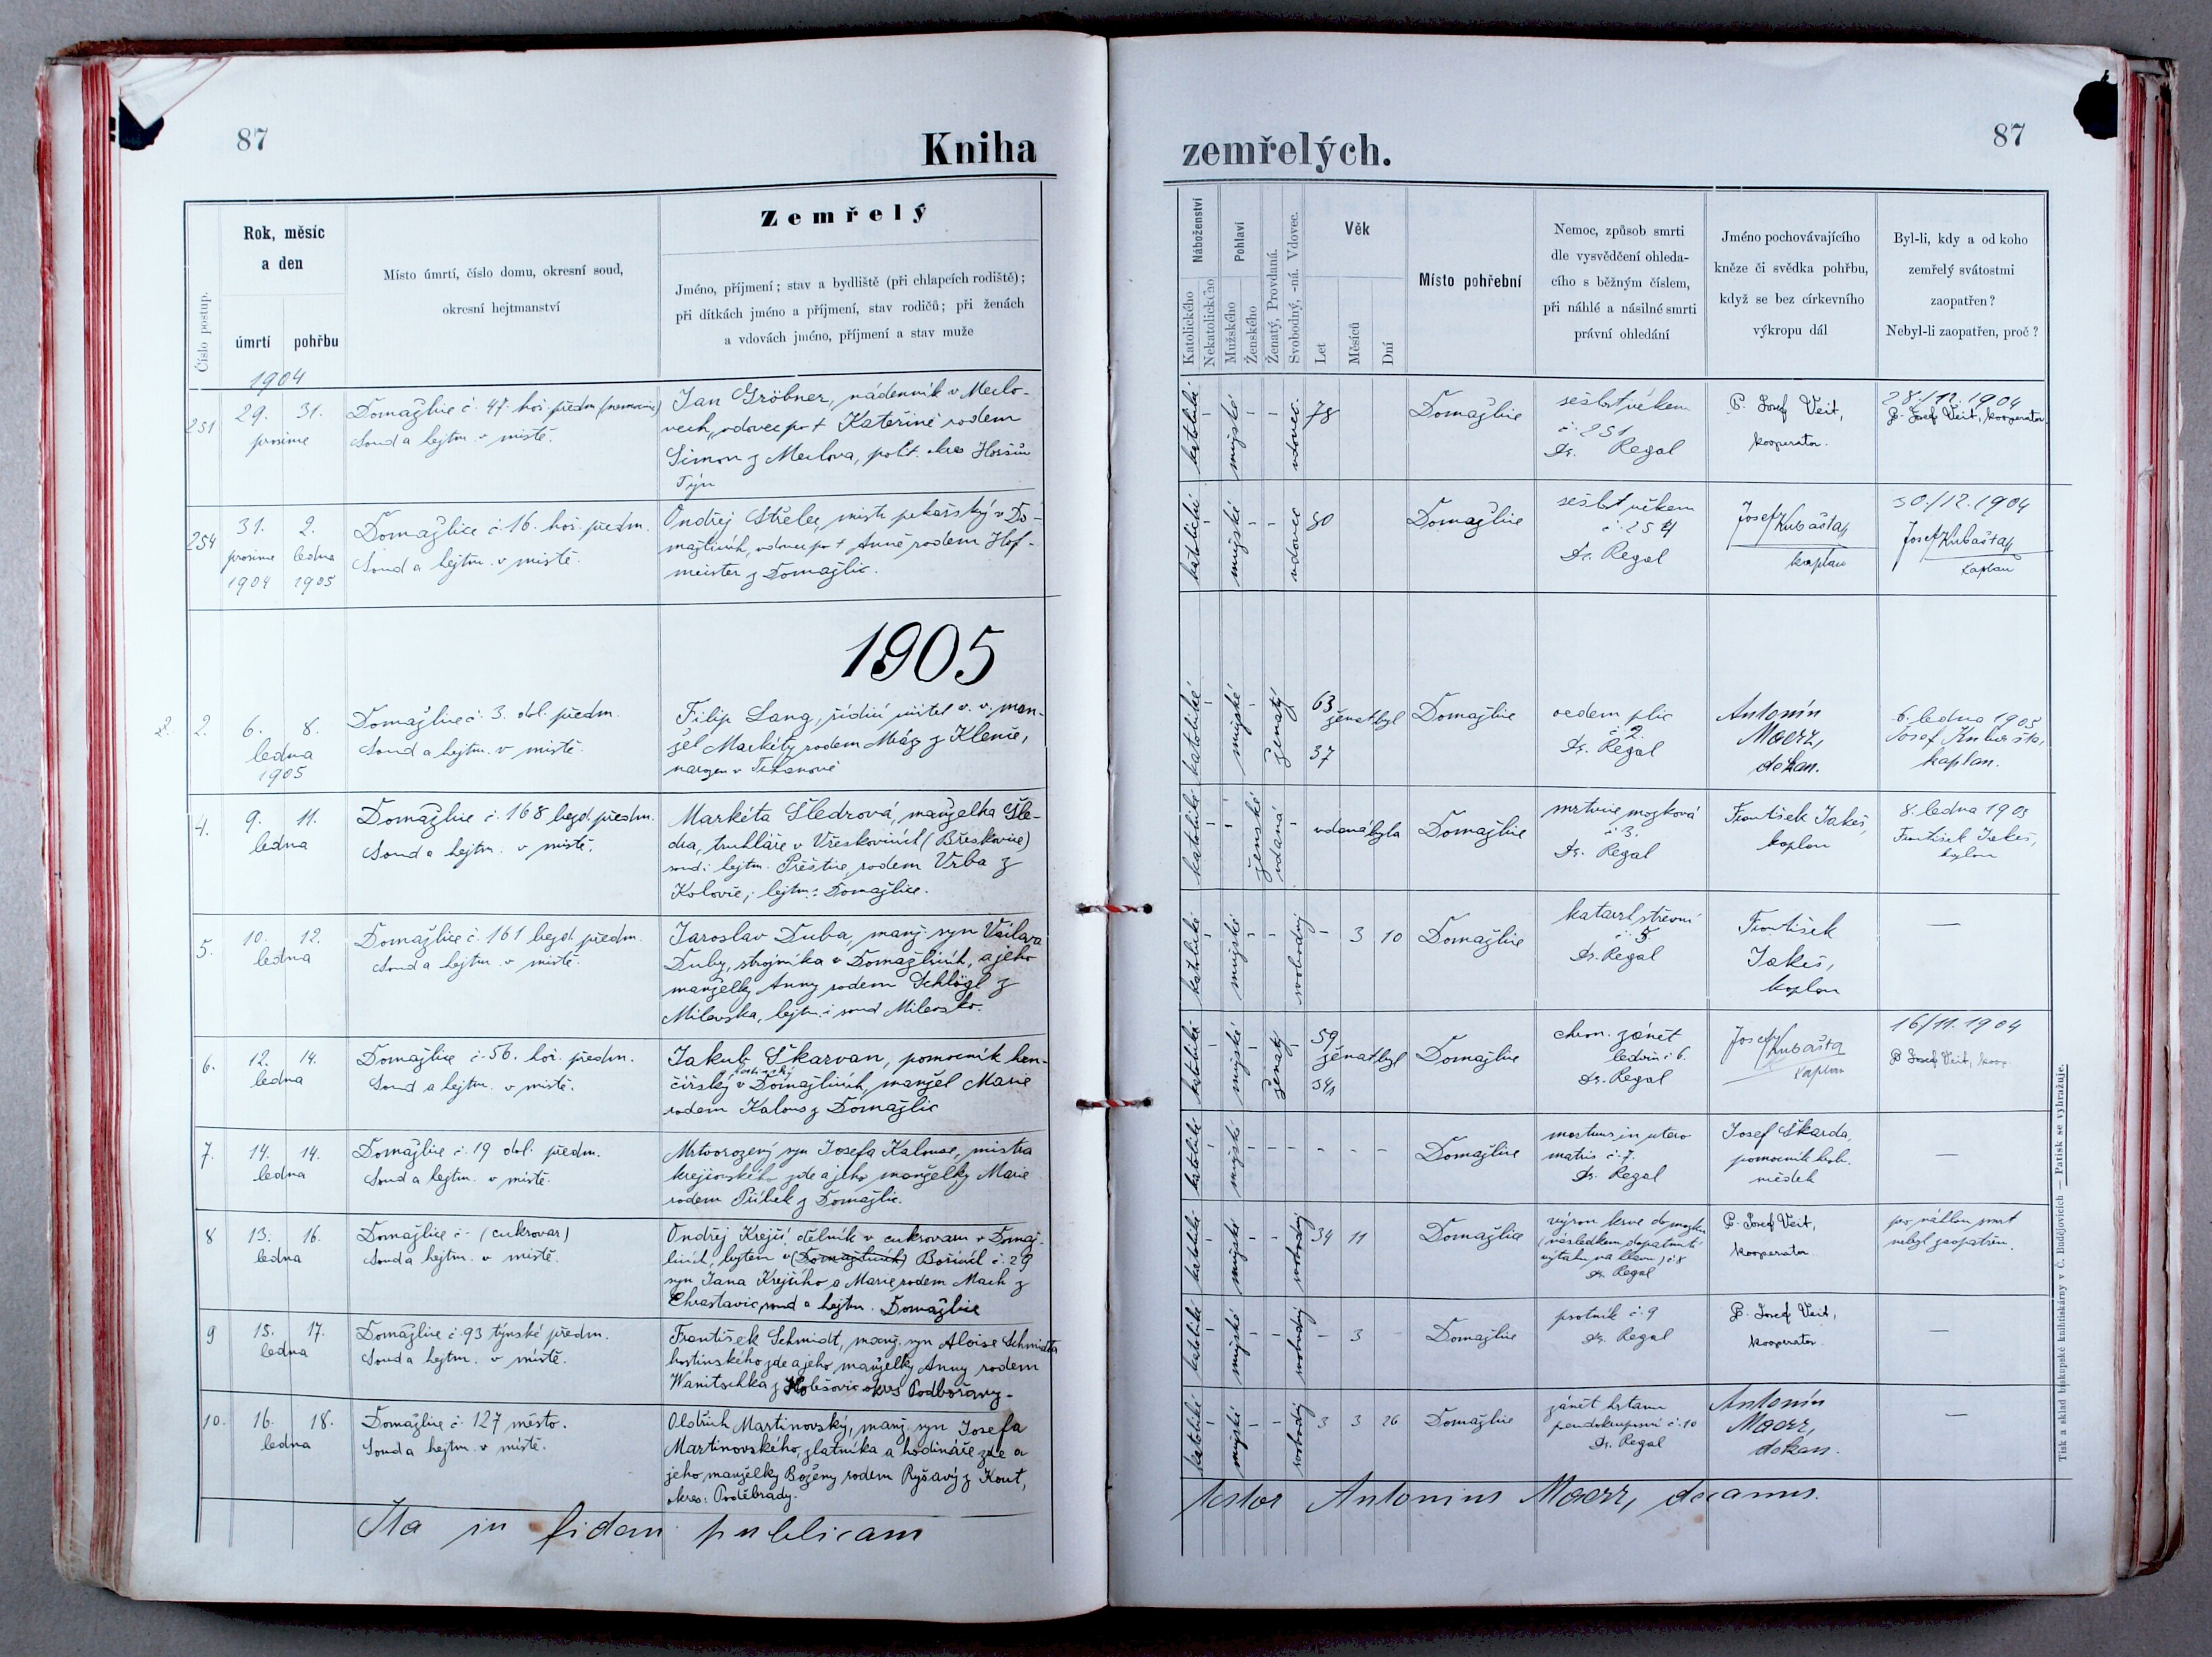 87
Kniha
Číslo postup.
Rok, měsíc
a den
úmrtí pohřbu
Místo úmrtí, číslo domu, okresní soud,
okresní hejtmanství
Zemřelý
Jméno, příjmení; stav a bydliště (při chlapcích rodiště);
při dítkách jméno a příjmení, stav rodičů; při ženách
a vdovách jméno, příjmení a stav muže
1904
251
29. 31.
prosince
Domažlice č. 47. hoř. předm (nemocnice)
Soud a hejtm. v místě.
Jan Gröbner, nádenník v Meclo-
vech, vdovec po † Kateřině rodem
Simon z Meclova, polit. okres Horšův
Týn
254
31. 2.
prosince ledna
1904 1905
Domažlice č. 16. hoř. předm.
Soud a hejtm. v místě.
Ondřej Střelec, mistr pekařský v Do-
mažlicích, vdovec po † Anně rodem Hof-
meister z Domažlic.
1905
2.
6. 8.
ledna
1905
Domažlice č. 3. dol. předm.
Soud a hejtm. v místě.
Filip Lang, řídící učitel v. v. man-
žel Markéty rodem z Klenčí,
narozen v
4.
9. 11.
ledna
Domažlice č. 168 bezd. předm.
Soud a hejtm. v místě.
Markéta Šledrová, manželka Šle-
dra, truhláře v Vřeskovicích (Břeskovice)
soud i hejtm. Přeštice, rodem Vrba z
Kolovče, hejtm.: Domažlice.
5.
10. 12.
ledna
Domažlice č. 161 bezd. předm.
Soud a hejtm. v místě.
Jaroslav Duba, manž. syn Václava
Duby, strojníka v Domažlicích, a jeho
manželky Anny rodem Schlögl z
Milevska, hejtm. i soud Milevsko.
6.
12. 14.
ledna
Domažlice č. 56. hoř. předm.
Soud a hejtm. v místě.
Jakub Škarvan, pomocník hon-
čířský v Domažlicích, manžel Marie
rodem Kalous z Domažlic
7.
14. 14.
ledna
Domažlice č. 19 dol. předm.
Soud a hejtm. v místě.
Mrtvorozený syn Josefa Kalouse, mistra
krejčovského zde a jeho manželky Marie
rodem Přibek z Domažlic.
8
13. 16.
ledna
Domažlice č - (cukrovar)
Soud a hejtm. v místě.
Ondřej Krejčí, dělník v cukrovaru v Domaž-
licích, bytem v (Domažlicích) Bořicích č. 29
syn Jana Krejčího a Marie rodem Mach z
Chrastavic, soud a hejtm. Domažlice
9
15. 17.
ledna
Domažlice č. 93 týnské předm.
Soud a hejtm. v místě.
František Schmidt, manž. syn Aloise Schmidta
hostinského zde a jeho manželky Anny rodem
Wanitschka z Holešovic okres Podbořany.
10.
16. 18.
ledna
Domažlice č. 127 město.
Soud a hejtm. v místě.
Oldřich Martinovský, manž. syn Josefa
Martinovského, zlatníka a hodináře zde a
jeho manželky Boženy rodem Ryšavý z Kout,
okres: Poděbrady.
Ita in fidem publicam
87
zemřelých.
Náboženství
Katolického
Nekatolického
Pohlaví
Mužského
Ženského
Ženatý, Provdaná.
Svobodný, -ná. Vdovec.
Věk
Let
Měsíců
Dní
Místo pohřební
Nemoc, způsob smrti
dle vysvědčení ohleda-
cího s běžným číslem,
při náhlé a násilné smrti
právní ohledání
Jméno pochovávajícího
kněze či svědka pohřbu,
když se bez církevního
výkropu dál
Byl-li, kdy a od koho
zemřelý svátostmi
zaopatřen?
Nebyl-li zaopatřen, proč?
katolické
mužské
vdovec.
78
Domažlice
sešlost věkem
č. 251
Dr. Regal
P. Josef Veit,
kooperator.
28./12. 1904
P. Josef Veit, kooperator.
katolické
mužské
vdovec
80
Domažlice
sešlost věkem
č. 254
Dr. Regal
Josef Kubašta
kaplan
30./12. 1904
Josef Kubašta
kaplan
katolické
mužské
ženatý
63
ženat byl
37
Domažlice
oedem plic
č. 2.
Dr. Regal
Antonín
Maerz,
děkan.
6. ledna 1905
Josef Kubašta,
kaplan.
katolické
ženské
vdaná
vdaná byla
Domažlice
mrtvice mozková
č. 3.
Dr. Regal
František Jakeš,
kaplan
8. ledna 1905
František Jakeš,
kaplan
katolické
mužské
svobodný
- 3 10
Domažlice
katarrh střevní
č. 5
Dr. Regal
František
Jakeš,
kaplan
—
katolické
mužské
ženatý
59
ženat byl
34
Domažlice
chron. zánět
ledvin č. 6.
Dr. Regal
Josef Kubašta
kaplan
16/11. 1904
P. Josef Veit, koop.
katolické
mužské
- - -
Domažlice
mortuus in utero
matris č. 7.
Dr. Regal
Josef Škarda,
pomocník hrob.
svědek
—
katolické
mužské
svobodný
34 11
Domažlice
výron krve do mozku
(následkem
výtahu na hlavu) č. 8
Dr. Regal
P. Josef Veit,
kooperator
pro náhlou smrt
nebyl zaopatřen.
katolické
mužské
svobodný
- 3
Domažlice
psotník č. 9
Dr. Regal
P. Josef Veit,
kooperator.
—
katolické
mužské
svobodný
3 3 26
Domažlice
zánět hrtanu
pseudokrupósní č. 10
Dr. Regal
Antonín
Maerz,
děkan.
—
testor Antonius Maerz, decanus.
Tisk a sklad biskupské knihtiskárny v Č. Budějovicích — Patisk se vyhražuje.